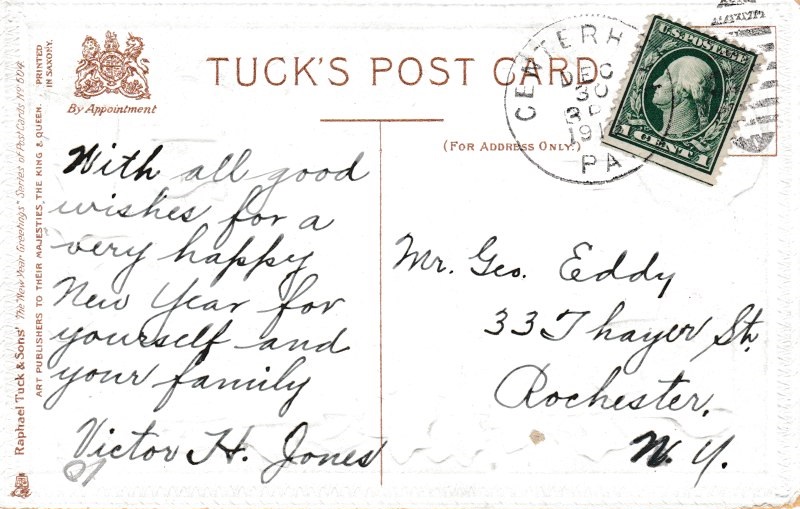 TUCK'S POST CARD
By Appointment
(FOR ADDRESS ONLY.)
PRINTED
IN SAXONY.
Raphael Tuck & Sons' The "New Year Greetings" Series of Post Cards No 604
ART PUBLISHERS TO THEIR MAJESTIES, THE KING & QUEEN.
CENTERH
DEC
30
191
PA
U.S. POSTAGE
1 CENT 1
With all good
wishes for a
very happy
New Year for
yourself and
your family
Victor H. Jones
Mr. Geo. Eddy
33 Thayer St.
Rochester,
N. Y.